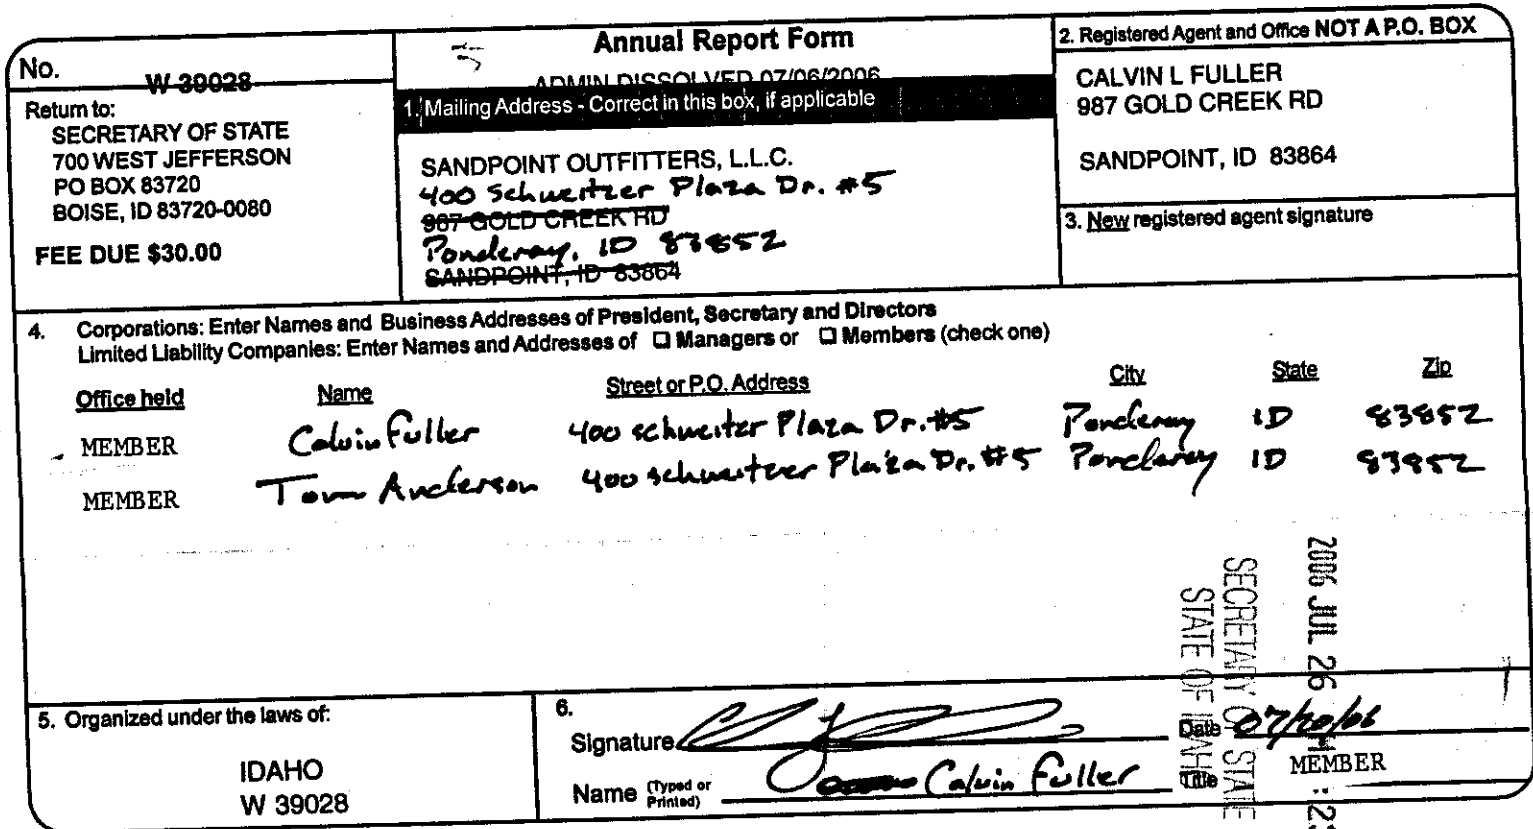 No. W 39028
Return to:
SECRETARY OF STATE
700 WEST JEFFERSON
PO BOX 83720
BOISE, ID 83720-0080
FEE DUE $30.00
Annual Report Form
ADMIN DISSOLVED 07/06/2006
1. Mailing Address - Correct in this box, if applicable
SANDPOINT OUTFITTERS, L.L.C.
400 Schweitzer Plaza Dr. #5
987 GOLD CREEK RD
Ponderay, ID 83852
SANDPOINT, ID 83864
2. Registered Agent and Office NOT A P.O. BOX
CALVIN L FULLER
987 GOLD CREEK RD
SANDPOINT, ID 83864
3. New registered agent signature
4. Corporations: Enter Names and Business Addresses of President, Secretary and Directors
Limited Liability Companies: Enter Names and Addresses of ☐ Managers or ☐ Members (check one)
Office held Name Street or P.O. Address City State Zip
MEMBER Calvin Fuller 400 schweitzer Plaza Dr. #5 Ponderay ID 83852
MEMBER Tom Anderson 400 schweitzer Plaza Dr. #5 Ponderay ID 83852
2006 JUL 26
SECRETARY OF STATE
STATE OF IDAHO
5. Organized under the laws of:
IDAHO
W 39028
6.
Signature Date 07/20/06
Name (Typed or Printed) Calvin Fuller Title MEMBER